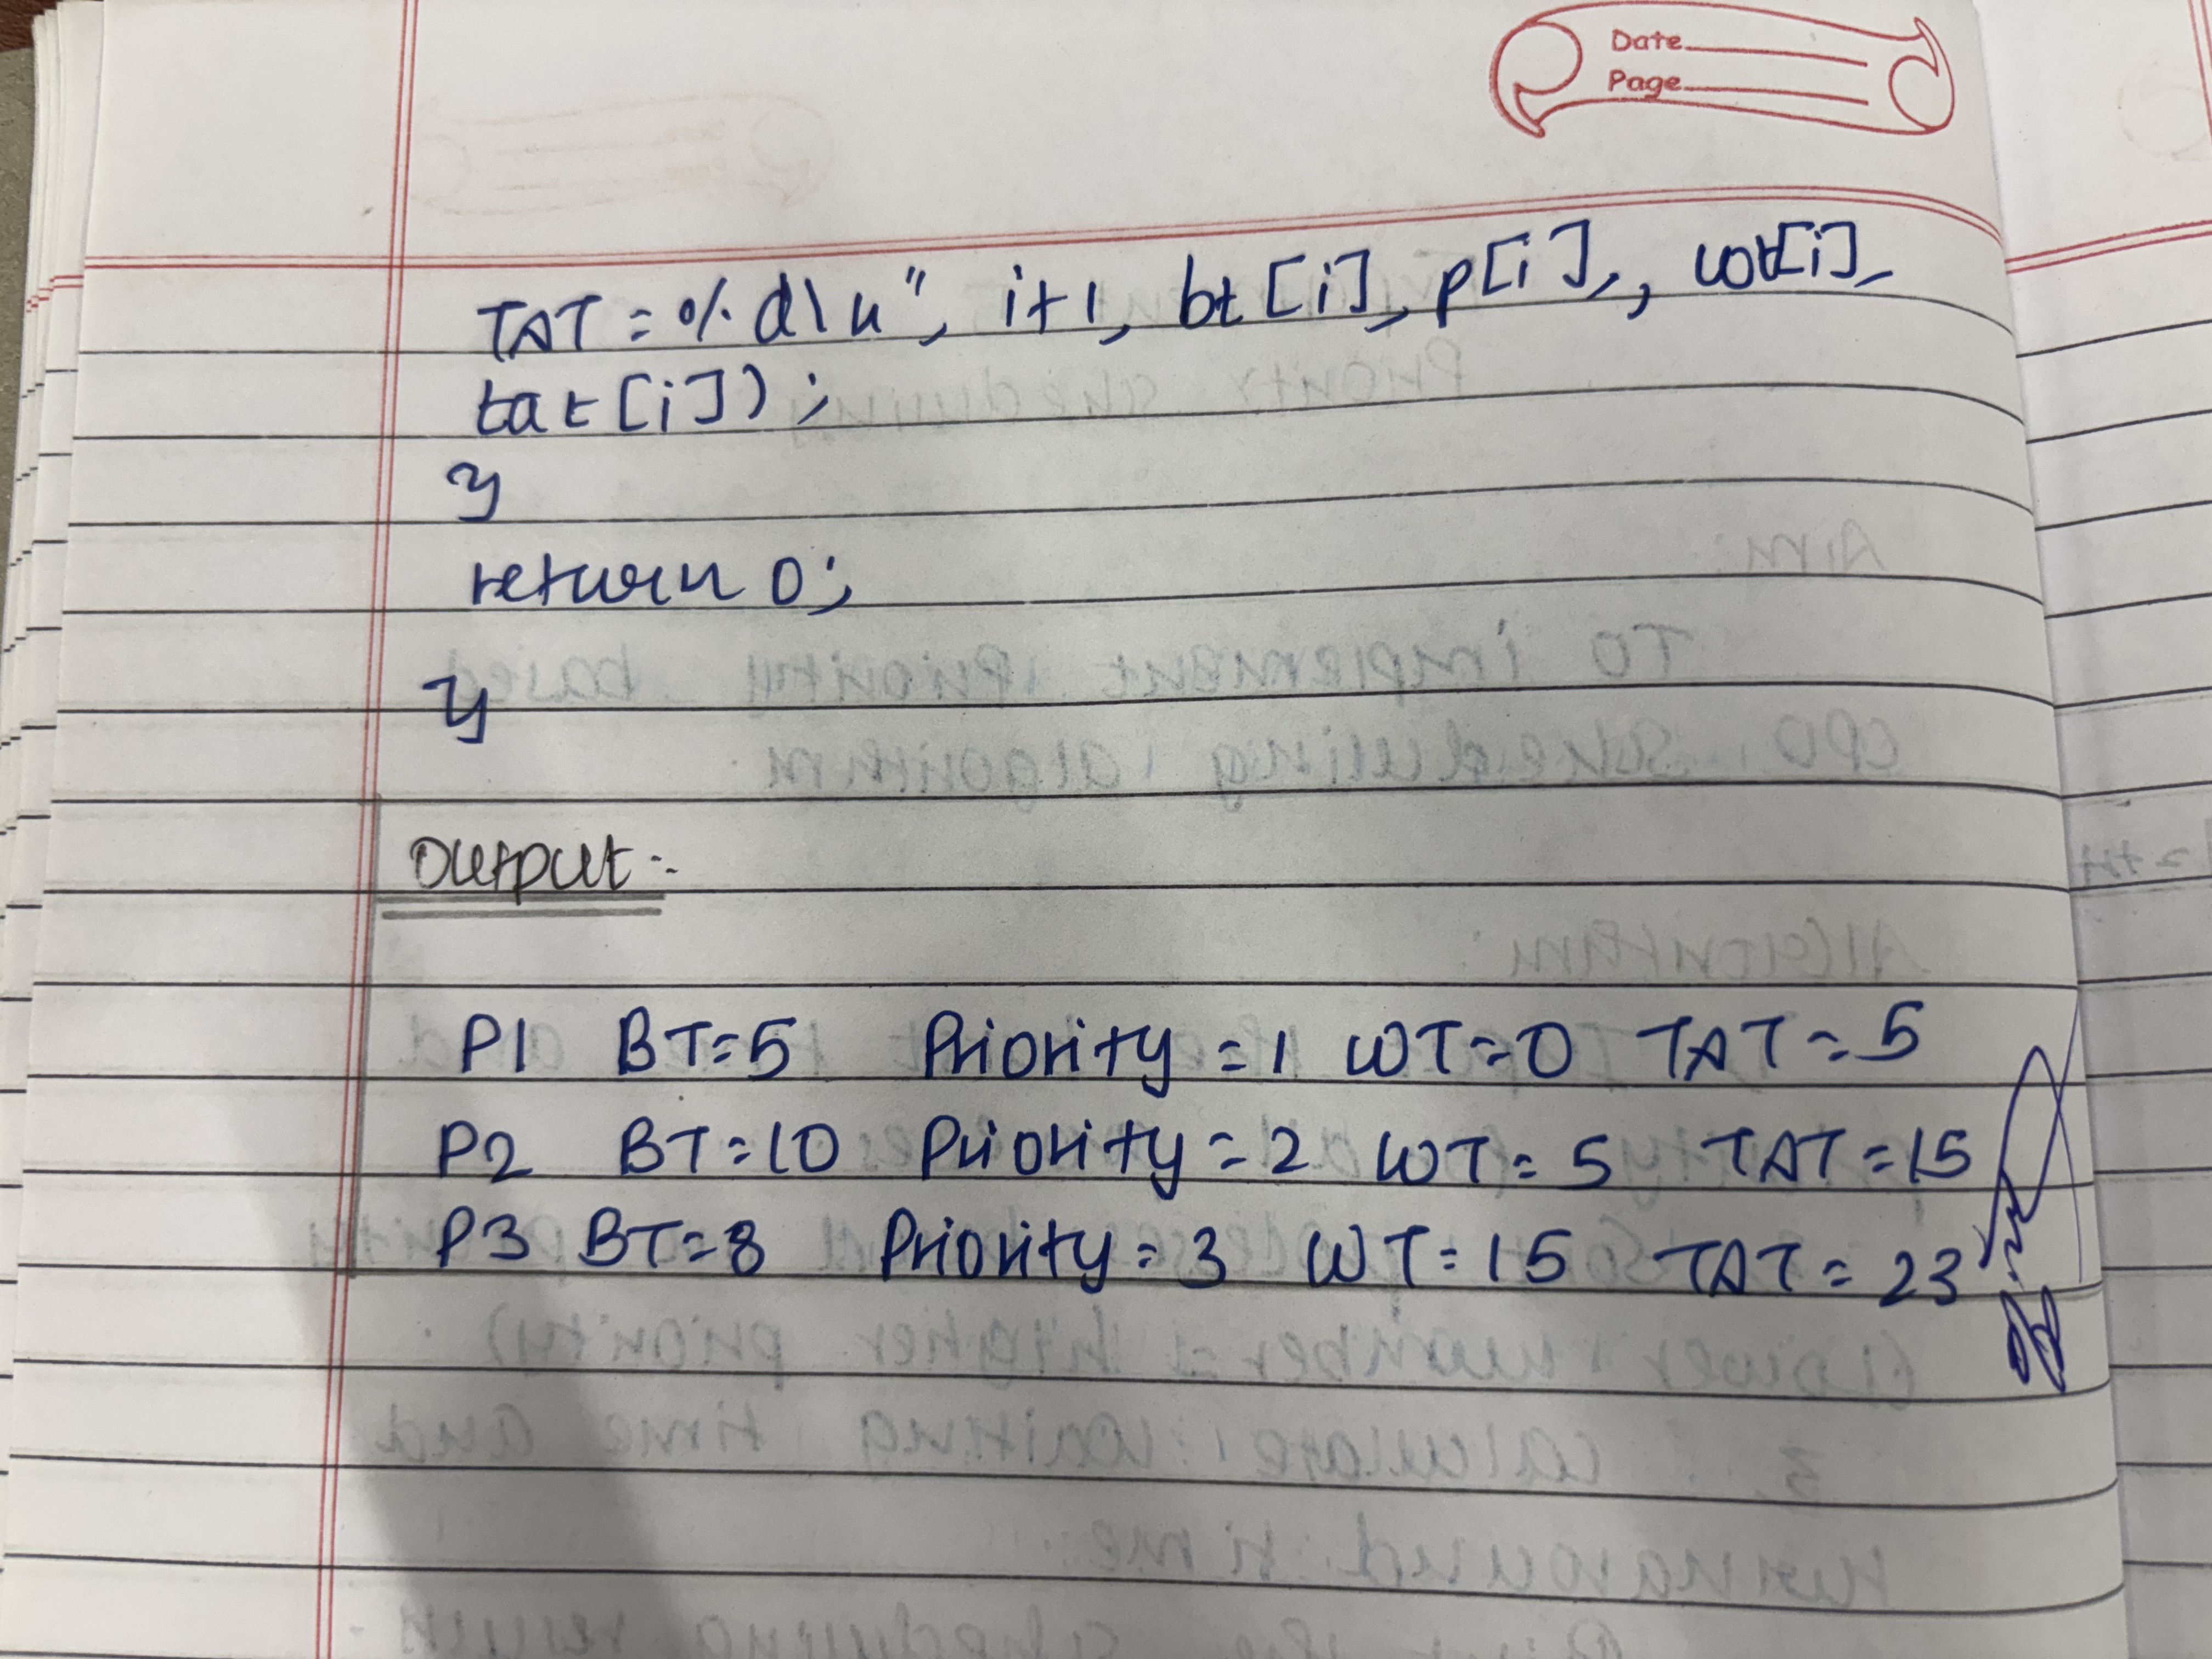 Date
Page
TAT = %d\n", i+1, bt[i], p[i], wt[i],
tat[i]);
}
return 0;
}
Output:-
P1 BT=5 Priority=1 WT=0 TAT=5
P2 BT=10 Priority=2 WT=5 TAT=15
P3 BT=8 Priority=3 WT=15 TAT=23